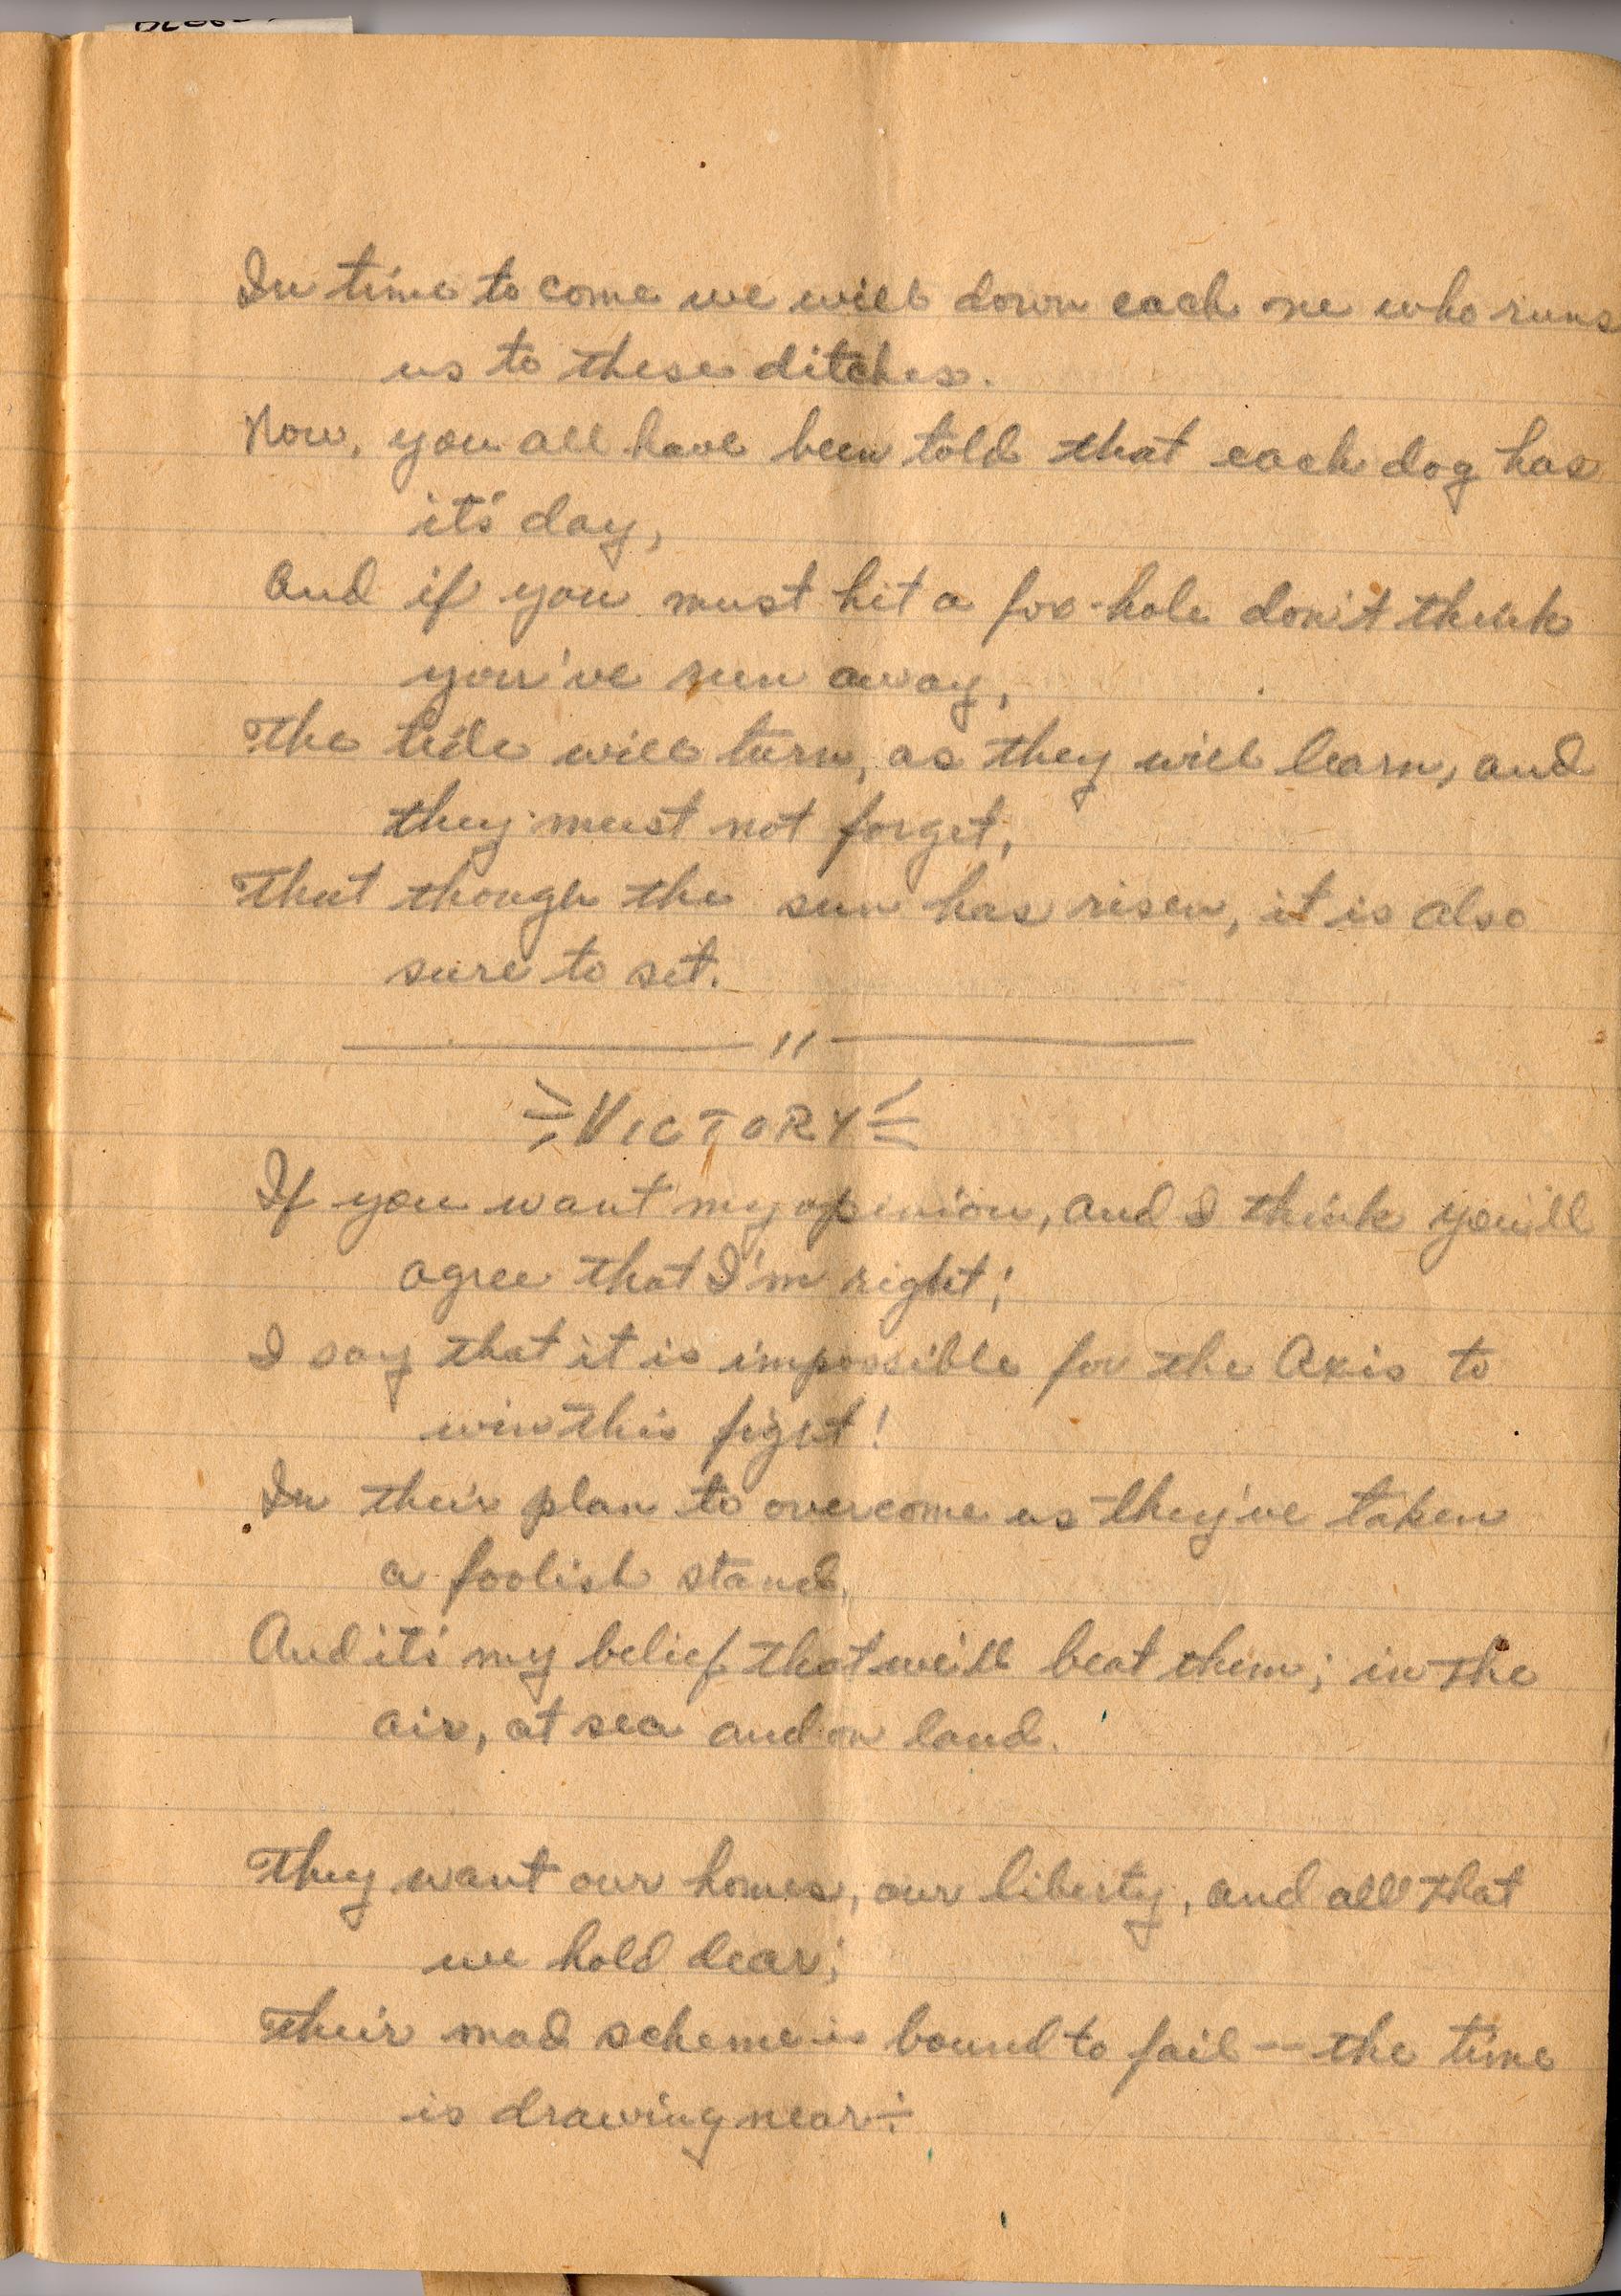 In time to come we will down each one who runs
us to these ditches.
Now, you all have been told that each dog has
it's day,
And if you must hit a fox-hole don't think
you've run away,
The tide will turn, as they will learn, and
they must not forget,
That though the sun has risen, it is also
sure to set.
"
VICTORY
If you want my opinion, and I think you'll
agree that I'm right;
I say that it is impossible for the Axis to
win this fight!
In their plan to overcome us they've taken
a foolish stand,
And it's my belief that we'll beat them; in the
air, at sea and on land.
They want our homes, our liberty, and all that
we hold dear;
Their mad scheme is bound to fail -- the time
is drawing near:-